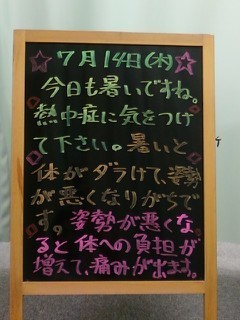 ☆7月14日(木)☆
今日も暑いですね。
熱中症に気をつけ
て下さい。暑いと
体がダラけて、姿勢
が悪くなりがちで
す。姿勢が悪くな
ると体への負担が
増えて、痛みが出ます。